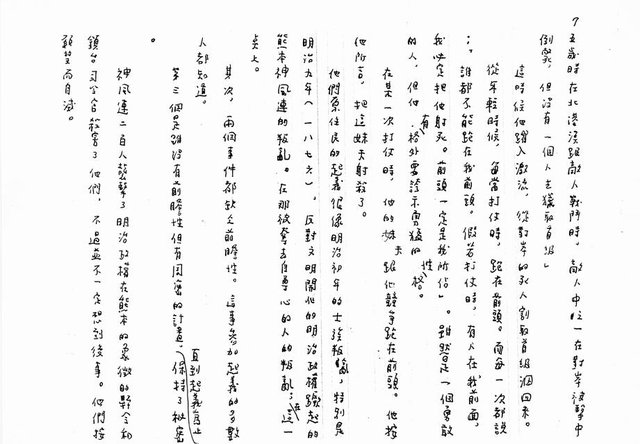 7
五歲時在北港溪跟敵人戰鬥時，敵人中之一在對岸被擊中
倒斃，但沒有一個人去獵取首級」
這時候他躍入激流，從對岸的死人割取首級洄回來。
從年輕時候，每當打仗時，跑在前頭。而每一次都說
：「誰都不能跑在我前頭。假若打仗時，有人在我前面，
我必定把他射死。前頭一定是我所佔」。雖然是一個勇敢
的人，但他有格外要誇示勇猛的性格。
在某一次打仗時，他的妹夫跟他競爭跑在前頭。他按
他所言，把這妹夫射殺了。
他們原住民的起義很像明治初年的士族叛亂，特別是
明治九年（一八七六），反對文明開化的明治政權蹶起的
熊本神風連的叛亂。在那被奪去自尊心的人的叛亂，在這一
點上。
其次，兩個事件都缺乏前瞻性。這事參加起義的多數
人都知道。
第三個是雖沒有前瞻性但有周密的計畫，直到起義為止保持了秘密
。
神風連二百人襲擊了明治政權在熊本的象徵的縣令和
鎮台司令官殺害了他們，不過並不一定想到後事。他們按
預望而自滅。